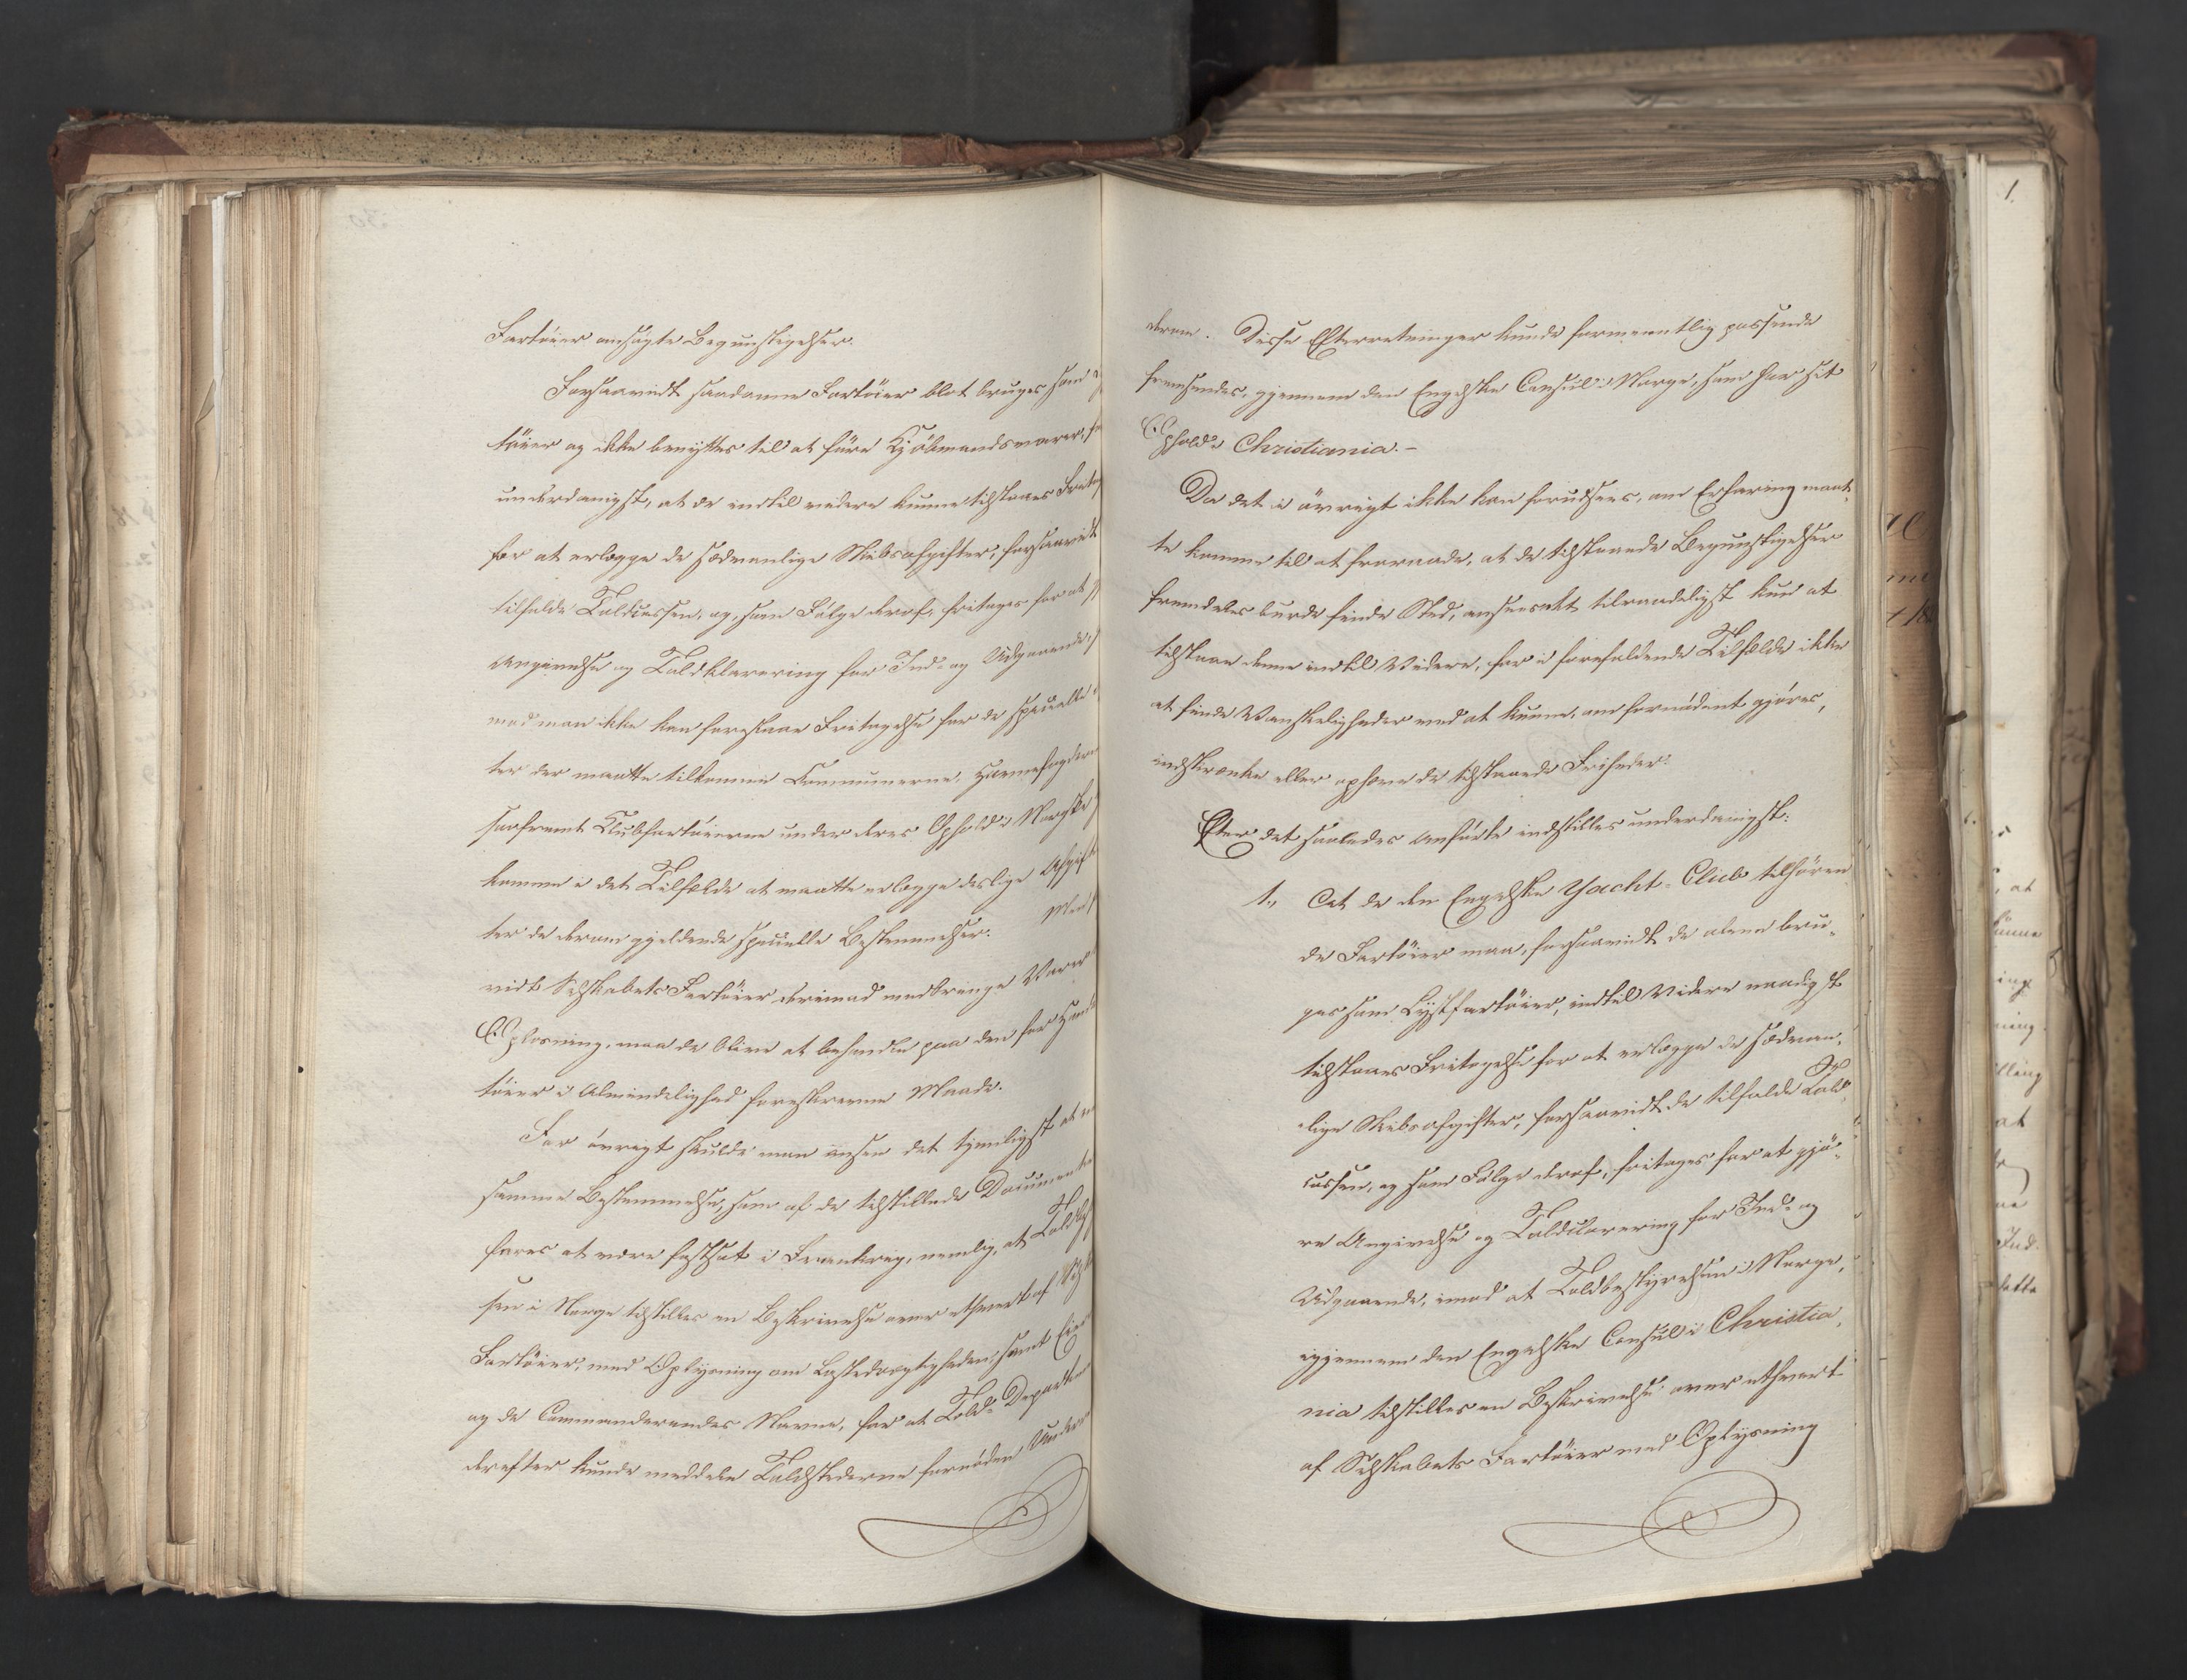 Fartöier ansøgte Begunstigelser.
Forsaavidt saadanne Fartöier blot bruges som
töier og ikke benyttes til at före Kjöbmandsvarer,
underdanigst, at de indtil videre kunne tilstaaes Fritag
for at erlægge de sædvanlige Skibsafgifter, forsaavidt
tilfalde Toldcassen, og, som Fölge deraf, fritages for at
Angivelse og Toldklarering for Ind- og Udgaaende,
mod man ikke kan foreslaae Fritagelse for de specielle
ter der maatte tilkomme Communerne,
saafremt Klubfartöierne under deres Ophold i Norske
komme i det Tilfælde at maatte erlægge deslige Afgift
ter de derom gjeldende specielle Bestemmelser. Men
vidt Selskabets Fartöier derimod medbringe Varer
Oplosning, maa de blive at behandle paa den for Hand
töier i Almindelighed foreskrevne Maade.
For övrigt skulde man ansee det tjenligst at
samme Bestemmelse, som af de tilstillede Documenter
fares at være fastsat i Frankrig, nemlig, at Toldbe
sen i Norge tilstilles en Beskrivelse over ethvert af
Fartöier, med Oplysning om Læstedrægtigheden samt Eier
og de Commanderendes Navne, for at Told-Departem
derefter kunde meddele Toldstederne fornöden Under
derom. Disse Efterretninger kunde formeentlig passende
fremsendes, gjennem den Engelske Consul i Norge, som har sit
Ophold i Christiania.-
Da det i övrigt ikke kan forudsees, om Erfaring maat-
te komme til at fraraade, at de tilstaaede Begunstigelser
fremdeles burde finde Sted, ansees det tilraadeligst kun at
tilstaae denne indtil Videre, for i forefaldende Tilfælde ikke
at finde Vanskeligheder ved at kunne, om fornödent gjöres,
indskrænke eller ophæve de tilstaaede Friheder.
Efter det saaledes Anförte indstilles underdanigst:
1., At de den Engelske Yacht-Club tilhören-
de Fartöier maa, forsaavidt de alene bru-
ges som Lystfartöier, indtil Videre naadigst
tilstaaes Fritagelse for at erlægge de sædvan-
lige Skibsafgifter, forsaavidt de tilfalde Told-
cassen, og som Fölge deraf, fritages for at gjö-
re Angivelse og Toldclarering for Ind- og
Udgaaende, imod at Toldbestyrelsen i Norge,
igjennem den Engelske Consul i Christia-
nia tilstilles en Beskrivelse over ethvert
af Selskabets Fartöier med Oplysning
1.